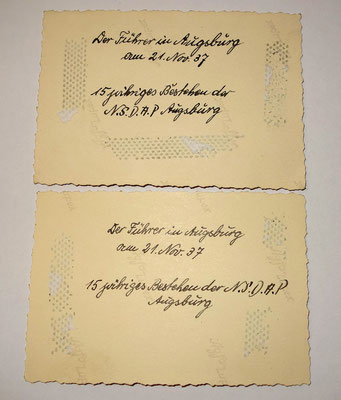 Der Führer in Augsburg
am 21. Nov. 37
15 jähriges Bestehen der
N.S.D.A.P Augsburg
Der Führer in Augsburg
am 21. Nov. 37
15 jähriges Bestehen der N.S.D.A.P
Augsburg